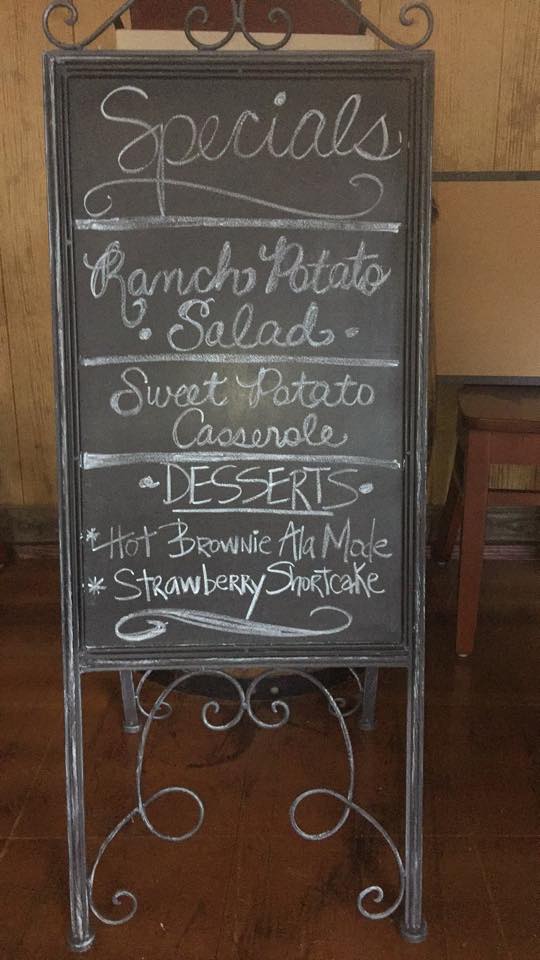 Specials
Ranch Potato
• Salad •
Sweet Potato
Casserole
• DESSERTS •
* Hot Brownie Ala Mode
* Strawberry Shortcake